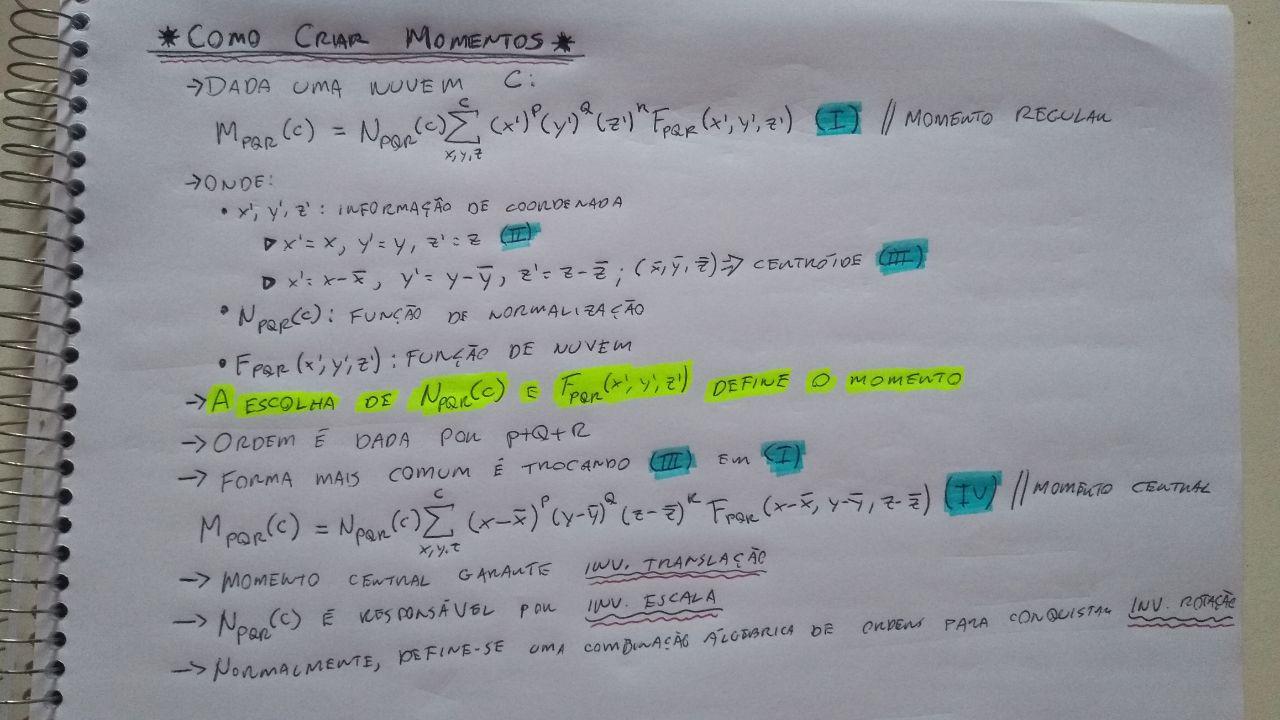 * COMO CRIAR MOMENTOS *
→ DADA UMA NUVEM C:
M_PQR(C) = N_PQR(C) Σ^C_{x,y,z} (x')^P (y')^Q (z')^R F_PQR(x', y', z') (I) // MOMENTO REGULAR
→ ONDE:
• x', y', z' : INFORMAÇÃO DE COORDENADA
▷ x' = x, y' = y, z' = z (II)
▷ x' = x-x̄, y' = y-ȳ, z' = z-z̄ ; (x̄, ȳ, z̄) ⇒ CENTRÓIDE (III)
• N_PQR(C) : FUNÇÃO DE NORMALIZAÇÃO
• F_PQR(x', y', z') : FUNÇÃO DE NUVEM
→ A ESCOLHA DE N_PQR(C) E F_PQR(x', y', z') DEFINE O MOMENTO
→ ORDEM É DADA POR P+Q+R
→ FORMA MAIS COMUM É TROCANDO (III) EM (I)
M_PQR(C) = N_PQR(C) Σ^C_{x,y,z} (x-x̄)^P (y-ȳ)^Q (z-z̄)^R F_PQR(x-x̄, y-ȳ, z-z̄) (IV) // MOMENTO CENTRAL
→ MOMENTO CENTRAL GARANTE INV. TRANSLAÇÃO
→ N_PQR(C) É RESPONSÁVEL POR INV. ESCALA
→ NORMALMENTE, DEFINE-SE UMA COMBINAÇÃO ÁLGEBRICA DE ORDENS PARA CONQUISTAR INV. ROTAÇÃO